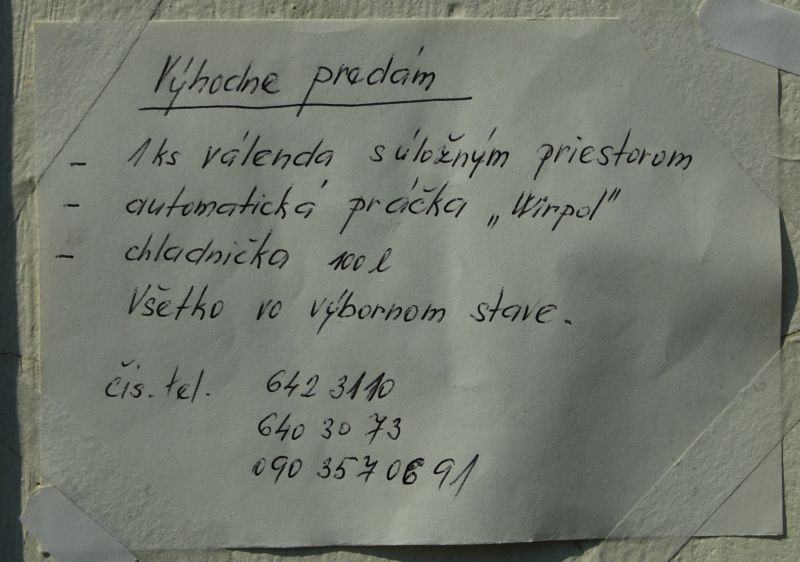 Výhodne predám
- 1ks válenda s úložným priestorom
- automatická práčka „Wirpol"
- chladnička 100 l
Všetko vo výbornom stave.
čis. tel. 642 3110
640 30 73
090 3570691